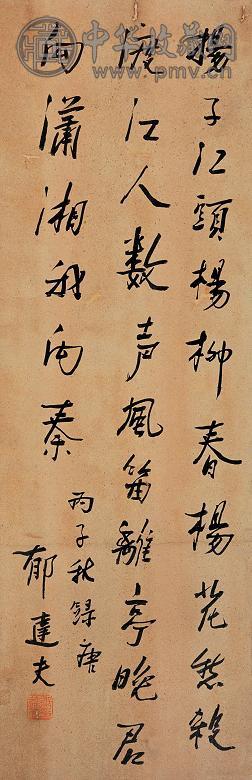 中华收藏网
www.pmv.cn
揚子江頭楊柳春楊花愁殺
渡江人數声風笛離亭晚君
向瀟湘我向秦
丙子秋録唐
郁達夫